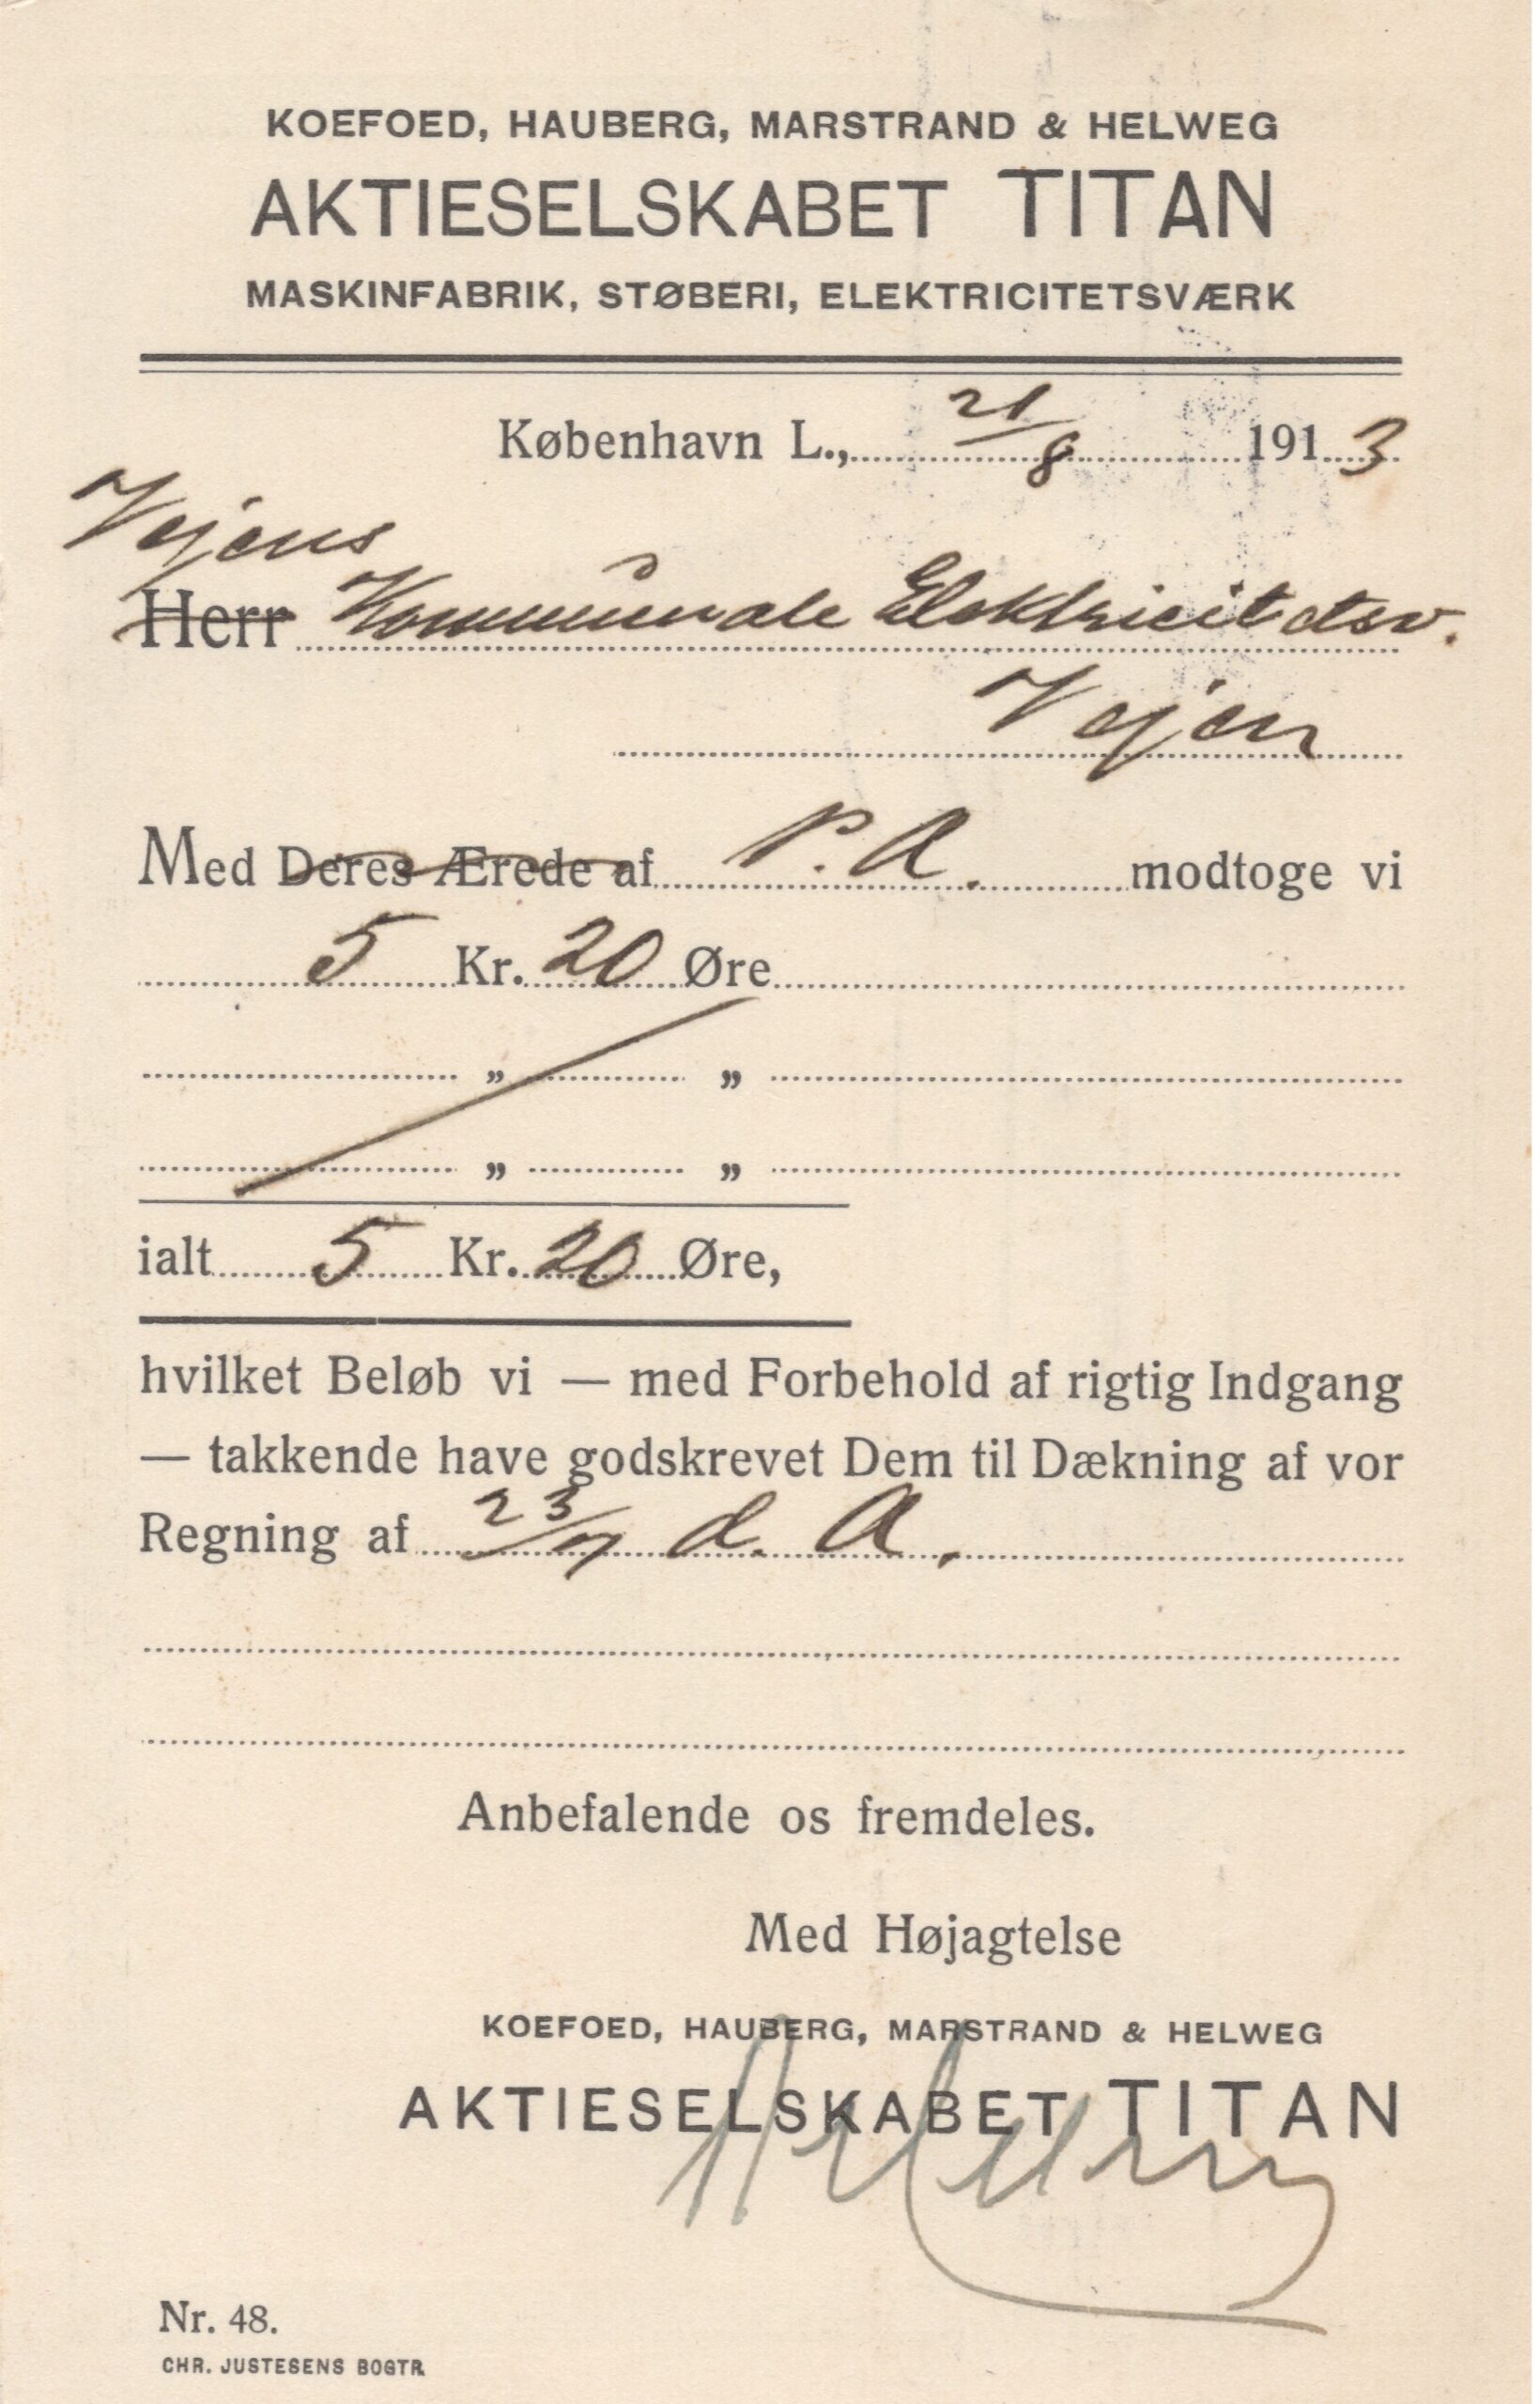 KOEFOED, HAUBERG, MARSTRAND & HELWEG
AKTIESELSKABET TITAN
MASKINFABRIK, STØBERI, ELEKTRICITETSVÆRK
København L., 21/8 1913
Vejens
Herr Kommunale Elektricitetsv.
Vejen
Med Deres Ærede af P. A. modtoge vi
5 Kr. 20 Øre
„ „
„ „
ialt 5 Kr. 20 Øre,
hvilket Beløb vi — med Forbehold af rigtig Indgang
— takkende have godskrevet Dem til Dækning af vor
Regning af 23/7 d. A.
Anbefalende os fremdeles.
Med Højagtelse
KOEFOED, HAUBERG, MARSTRAND & HELWEG
AKTIESELSKABET TITAN
Nr. 48.
CHR. JUSTESENS BOGTR.